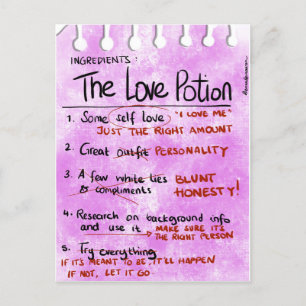 INGREDIENTS:
The Love Potion
1. Some self love "I LOVE ME"
JUST THE RIGHT AMOUNT
2. Great outfit PERSONALITY
3. A few white lies BLUNT
& compliments HONESTY!
4. Research on background info
and use it → MAKE SURE IT'S
THE RIGHT PERSON
5. Try everything
IF IT'S MEANT TO BE IT'LL HAPPEN
IF NOT, LET IT GO